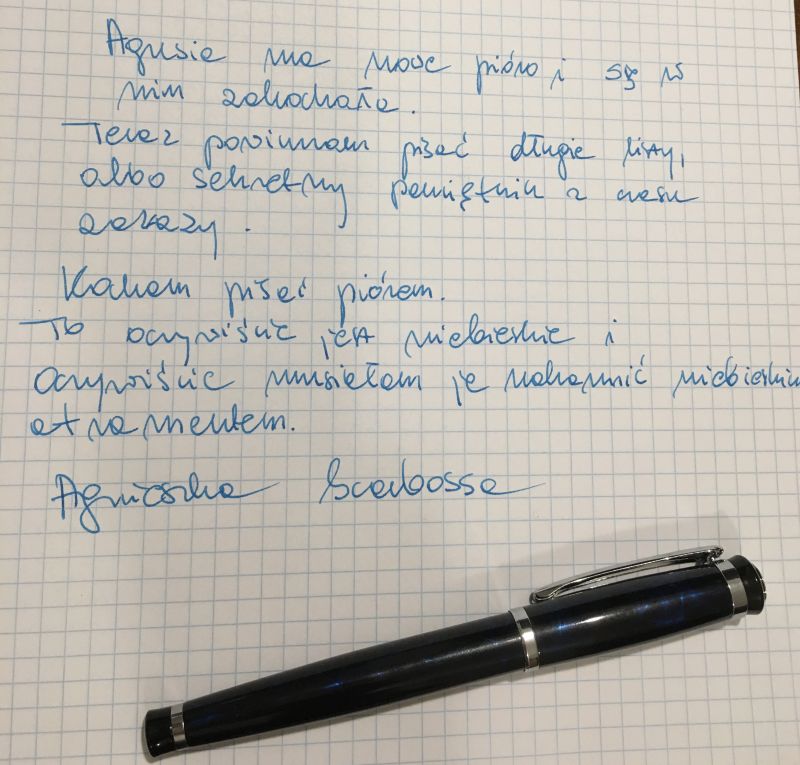 Agusia ma nowe pióro i się w
nim zakochała.
Teraz powinnam pisać długie listy,
albo sekretny pamiętnik z czasu
zarazy.
Kocham pisać piórem.
To oczywiście jest niebieskie i
Oczywiście musiałam je nakarmić niebieskim
atramentem.
Agnieszka